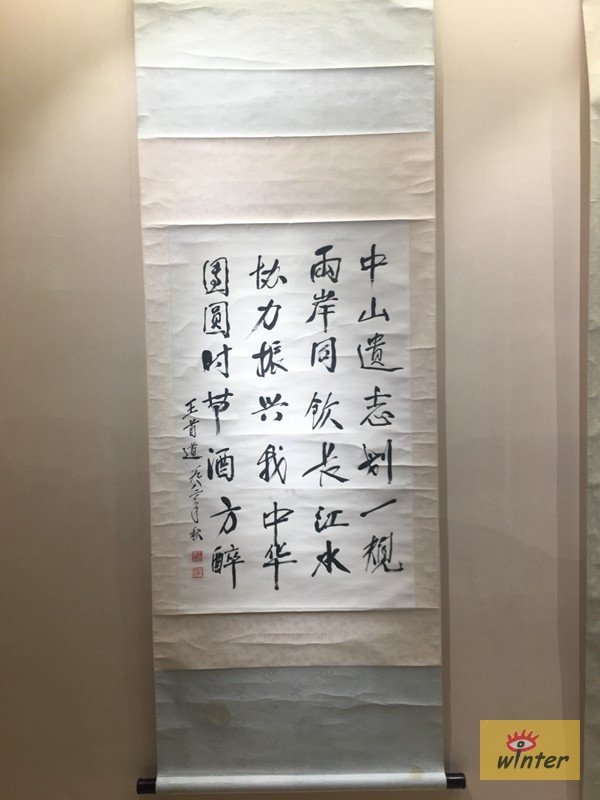 中山遗志划一规
兩岸同饮长江水
协力振兴我中华
團圓时节酒方醉
王首道 一九八二年秋
winter